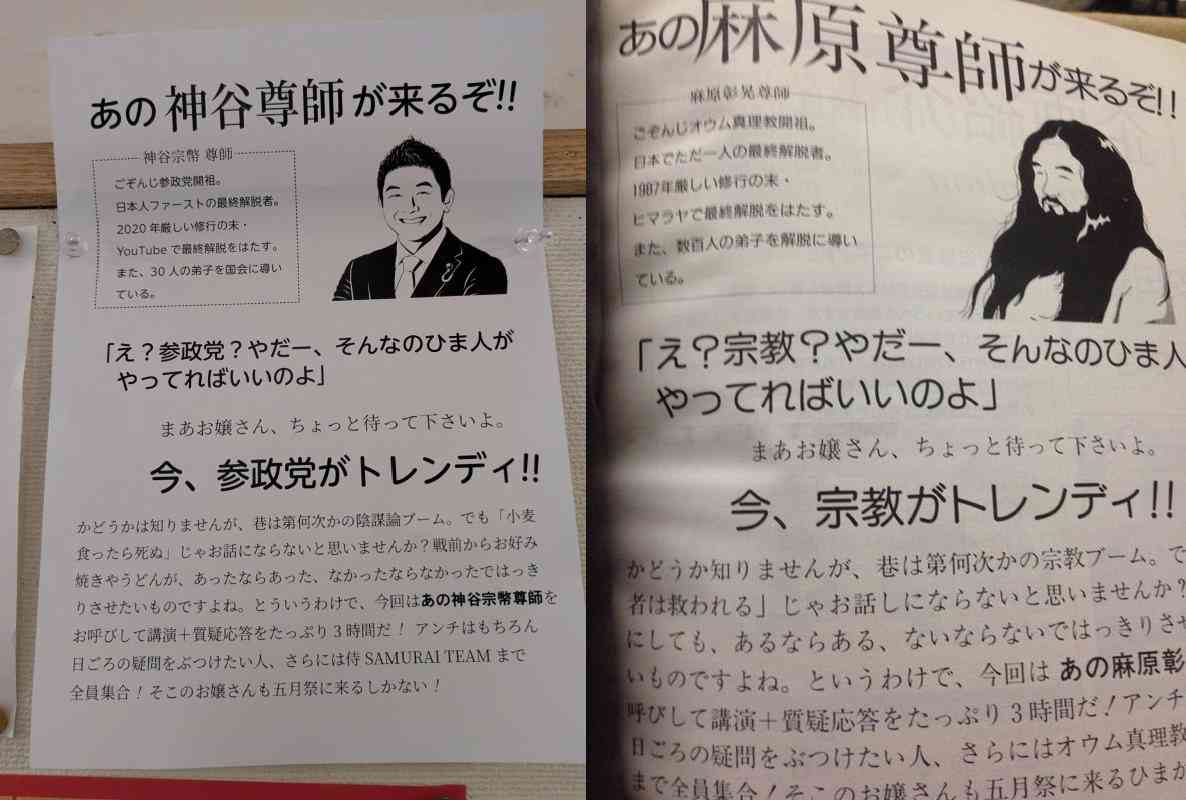 あの神谷尊師が来るぞ!!
神谷宗幣 尊師
ごぞんじ参政党開祖。
日本人ファーストの最終解脱者。
2020年厳しい修行の末・
YouTubeで最終解説をはたす。
また、30人の弟子を国会に導い
ている。
「え？参政党？やだー、そんなのひま人が
やってればいいのよ」
まあお嬢さん、ちょっと待って下さいよ。
今、参政党がトレンディ!!
かどうかは知りませんが、巷は第何次かの陰謀論ブーム。でも「小麦
食ったら死ぬ」じゃお話にならないと思いませんか？戦前からお好み
焼きやうどんが、あったならあった、なかったならなかったではっき
りさせたいものですよね。とういうわけで、今回はあの神谷宗幣尊師を
お呼びして講演＋質疑応答をたっぷり3時間だ！ アンチはもちろん
日ごろの疑問をぶつけたい人、さらには侍 SAMURAI TEAM まで
全員集合！そこのお嬢さんも五月祭に来るしかない！
あの麻原尊師が来るぞ!!
麻原彰晃尊師
ごぞんじオウム真理教開祖。
日本でただ一人の最終解脱者。
1987年厳しい修行の末・
ヒマラヤで最終解脱をはたす。
また、数百人の弟子を解脱に導い
ている。
「え？宗教？やだー、そんなのひま人
やってればいいのよ」
まあお嬢さん、ちょっと待って下さいよ。
今、宗教がトレンディ!!
かどうか知りませんが、巷は第何次かの宗教ブーム。で
者は救われる」じゃお話しにならないと思いませんか？
にしても、あるならある、ないならないではっきりさせ
いものですよね。というわけで、今回は あの麻原彰
呼びして講演＋質疑応答をたっぷり3時間だ！アンチ
日ごろの疑問をぶつけたい人、さらにはオウム真理教
まで全員集合！そこのお嬢さんも五月祭に来るひまが